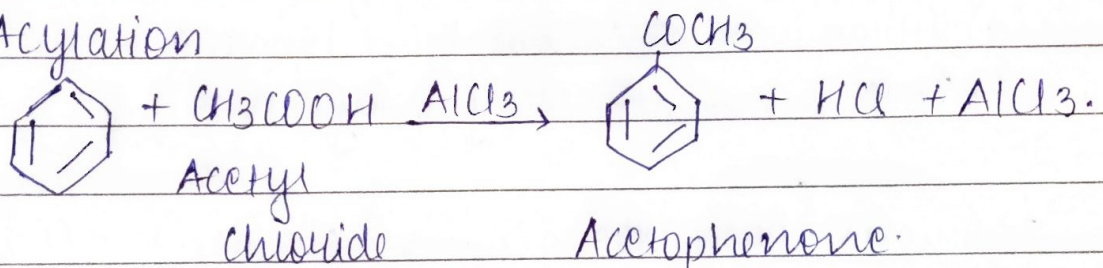 Acylation
COCH3
+ CH3COOH AlCl3 + HCl + AlCl3.
Acetyl
Chloride Acetophenone.